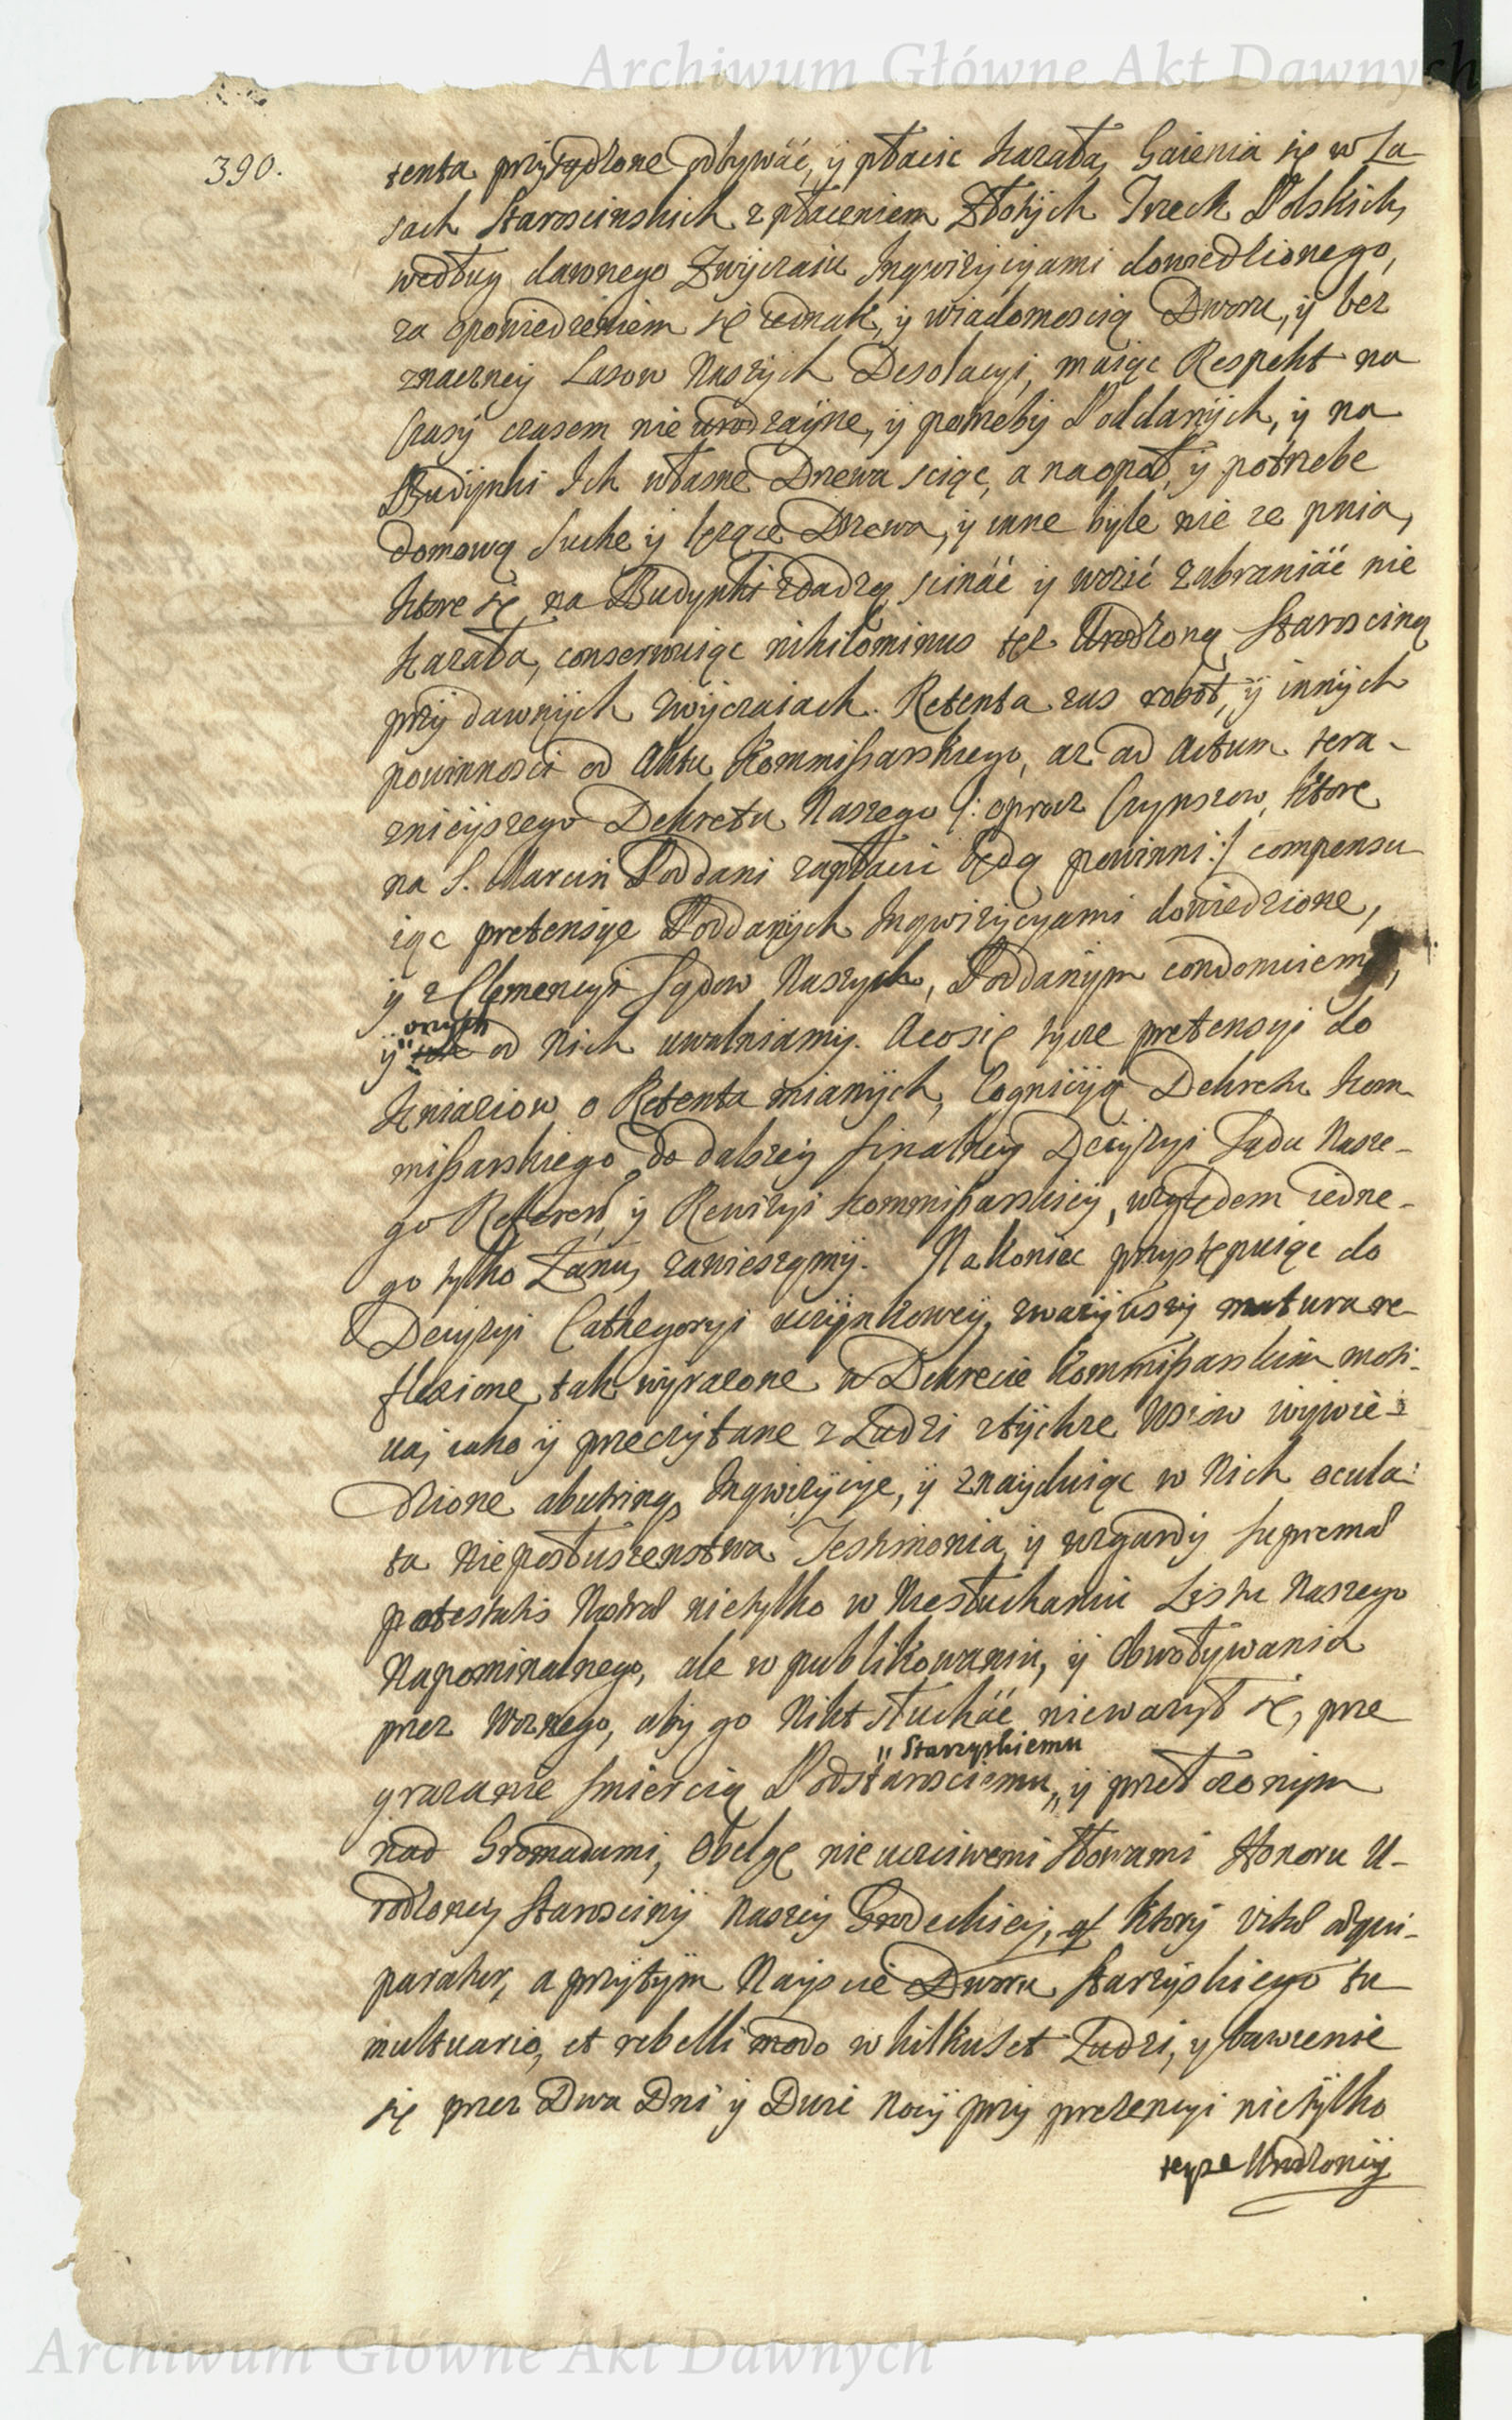 Archiwum Główne Akt Dawnych
390.
tenta przysądzone odbywáć, ÿ płacic kazała, Gaienia się w La-
sach Staroscinskich z płaceniem Złotych Trzech Polskich,
według dawnego Zwyczaiu Inqwizycyami dowiedzionego,
za opowiedzeniem się iednak, ÿ wiadomoscią Dworu, ÿ bez
znaczney Lasow Naszych Desolacyi, maiąc Respekt na
Czasy czasem nie urodzayne, ÿ potrzeby Poddanych, ÿ na
Budynki Ich własne Drzewa sciąc, a na opał, ÿ potrzebe
domową suche ÿ lezące Drzewa, ÿ inne byle nie ze pnia,
ktore się na Budynki zdadzą scináć ÿ wozić zabraniáć nie
kazała, conserwuiąc nihilominus tęz Urodzoną Staroscinę
przy dawnych zwyczaiach. Retenta zas robot, ÿ innych
powinnosci od Aktu Kommissarskiego, az ad Actum tera-
znieyszego Dekretu Naszego /: oprocz Czynszow, ktore
na S. Marcin Poddani zapłacic będą powinni :/ compensu
iąc pretensye Poddanych Inqwizycyami dowiedzione,
ÿ z Clemencyi Sądow Naszych, Poddanym condonuiemy,
ÿ onych od Nich uwalniamy. A co się tycze pretensyi do
Kniaziow o Retenta mianych, Cognicyą Dekretu Kom-
missarskiego do dalszey finalney Decyzyi Sądu Nasze-
go Referend. ÿ Rewizyi Kommissarskiey, względem iedne-
go tylko Łanu, zawieszamy. Nakoniec przystępuiąc do
Decyzyi Cathegoryi uczynkowey, zwazywszy matura re-
flexione tak wyrazone w Dekrecie Kommissarskim moti-
ua, iako ÿ przeczytane z Ludzi z tychze Wsiow wywie-
dzione abutrinq Inqwizycye, ÿ znayduiąc w Nich ocula-
ta Nieposłuszenstwa Testimonia, ÿ wzgardy Supremæ
potestatis Nostræ nietylko w Niesłuchaniu Listu Naszego
Napominalnego, ale w publikowaniu, ÿ Obwoływania
przez Woznego, aby go Nikt słucháć niewazył się, prze
grazanie smiercią Podstarosciemu „Starzyskiemu„ ÿ przełozonym
nad Gromadami, Obelgę nieuczciwemi słowami Honoru U-
rodzoney Starosciny Naszey Grodeckiey, ktory vitæ æqui-
paratur, a przytym Nayscie Dworu Starzyskiego tu
multuario, et rebelli modo w kilkuset Ludzi, y bawienie
się przez Dwa Dni ÿ Dwie Nocy przy prezencyi nietylko
teyze Urodzoney
Archiwum Główne Akt Dawnych